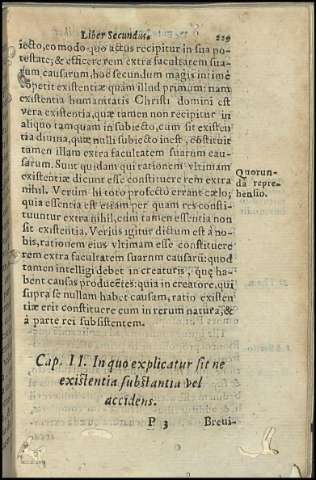 Liber Secundus. 229
iecto, eo modo quo actus recipitur in sua po-
testate; & efficere rem extra facultatem sua-
rum causarum, hoc secundum magis intimè
competit existentiæ quam illud primum: nam
existentia humanitatis Christi domini est
vera existentia, quæ tamen non recipitur in
aliquo tamquam in subiecto, cum sit existen
tia divina, quæ nulli subiecto inest, constituit
tamen illam extra facultatem suarum cau-
sarum. Sunt quidam qui rationem vltimam
existentiæ dicunt esse constituere rem extra
nihil. Verum hi toto profecto errant cælo;
quia essentia est etiam per quam res consti-
tuuntur extra nihil, cùm tamen essentia non
sit existentia. Verius igitur dictum est à no-
bis, rationem eius vltimam esse constituere
rem extra facultatem suarum causarũ: quod
tamen intelligi debet in creaturis, quę ha-
bent causas producẽtes: quia in creatore, qui
supra se nullam habet causam, ratio existen
tiæ erit constituere eum in rerum natura, &
à parte rei subsistentem.
Quorun-
dã repre-
hensio.
Cap. II. In quo explicatur sit ne
existentia substantia vel
accidens.
P 3 Brevi-